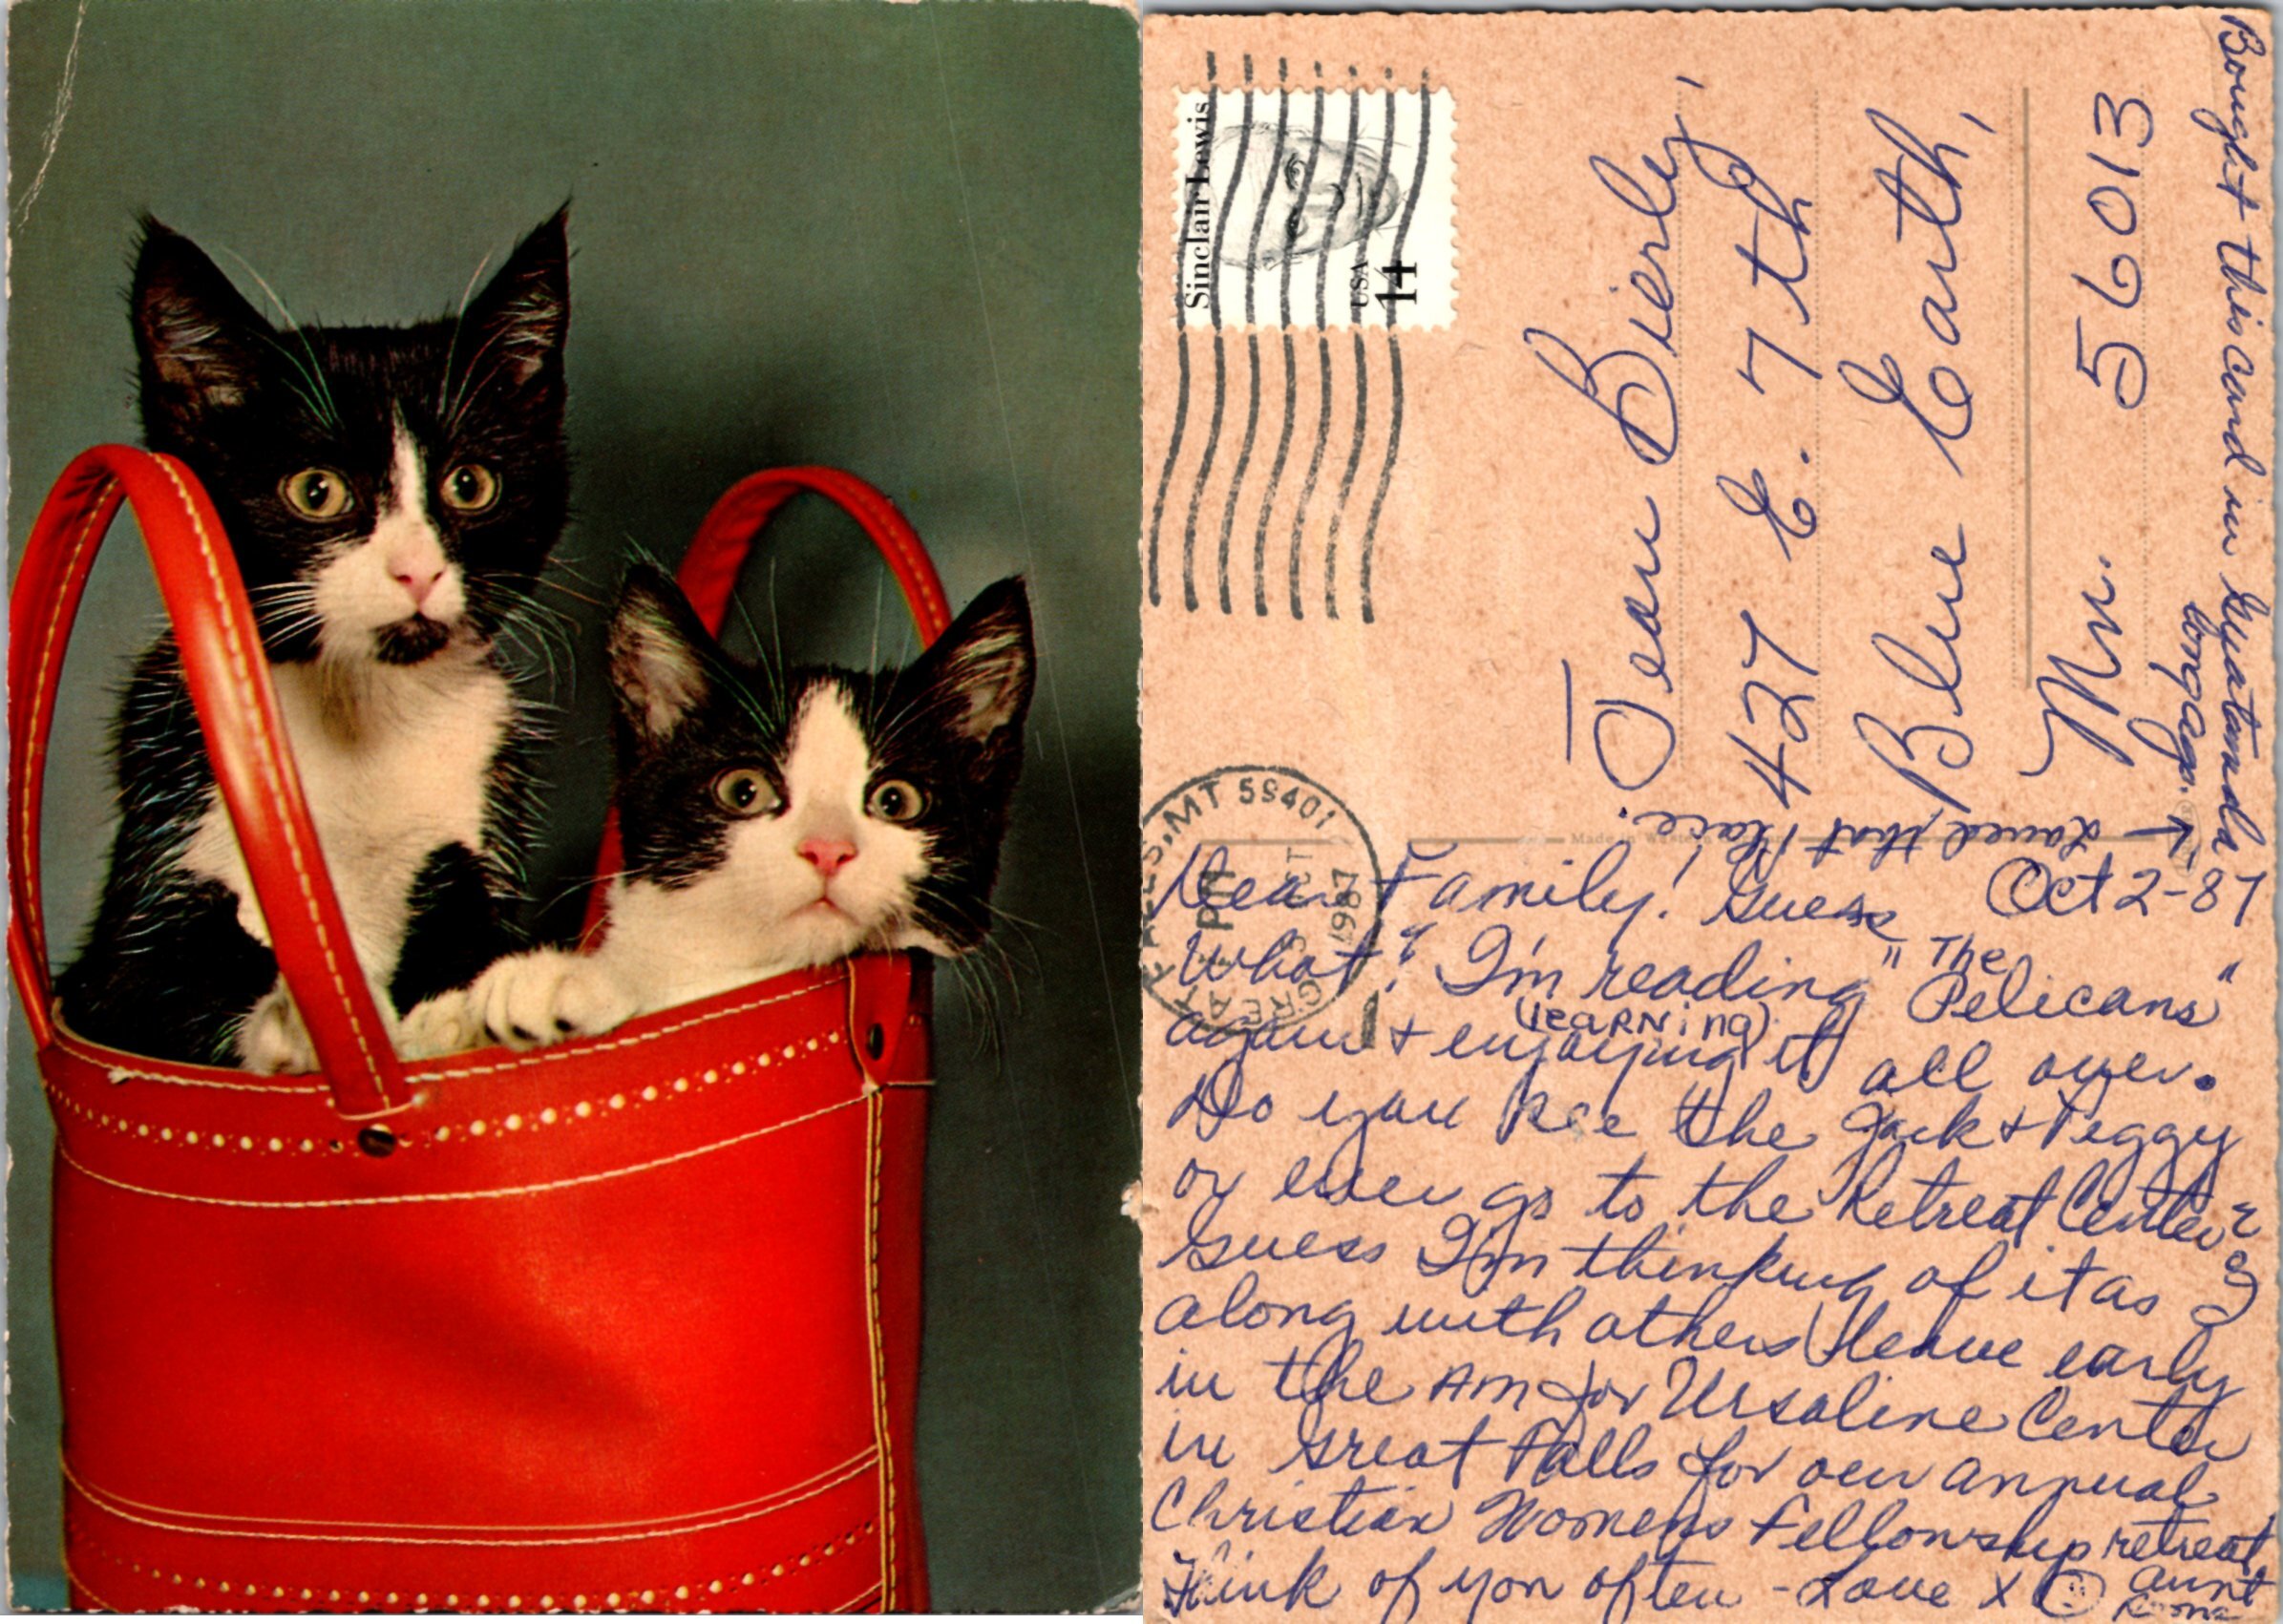 Sinclair Lewis
USA
14
FALLS, MT 59401
PM
OCT
1987
GREAT
Jean Bierly,
427 E. 7th
Blue Earth,
Mn. 56013
Bought this card in Guatamala
long ago.
Loved that Place.
Made in
Oct 2-87
Dear Family! Guess
What? I'm reading "The Pelicans"
again + enjoying it all over.
(leaRNing)
Do you see the Jack + Peggy
or ever go to the Retreat Center?
Guess I'm thinking of it as I
along with others leave early
in the AM for Ursaline Center
in Great Falls for our annual
Christian Womens Fellowship retreat.
Think of you often - Love X
aunt